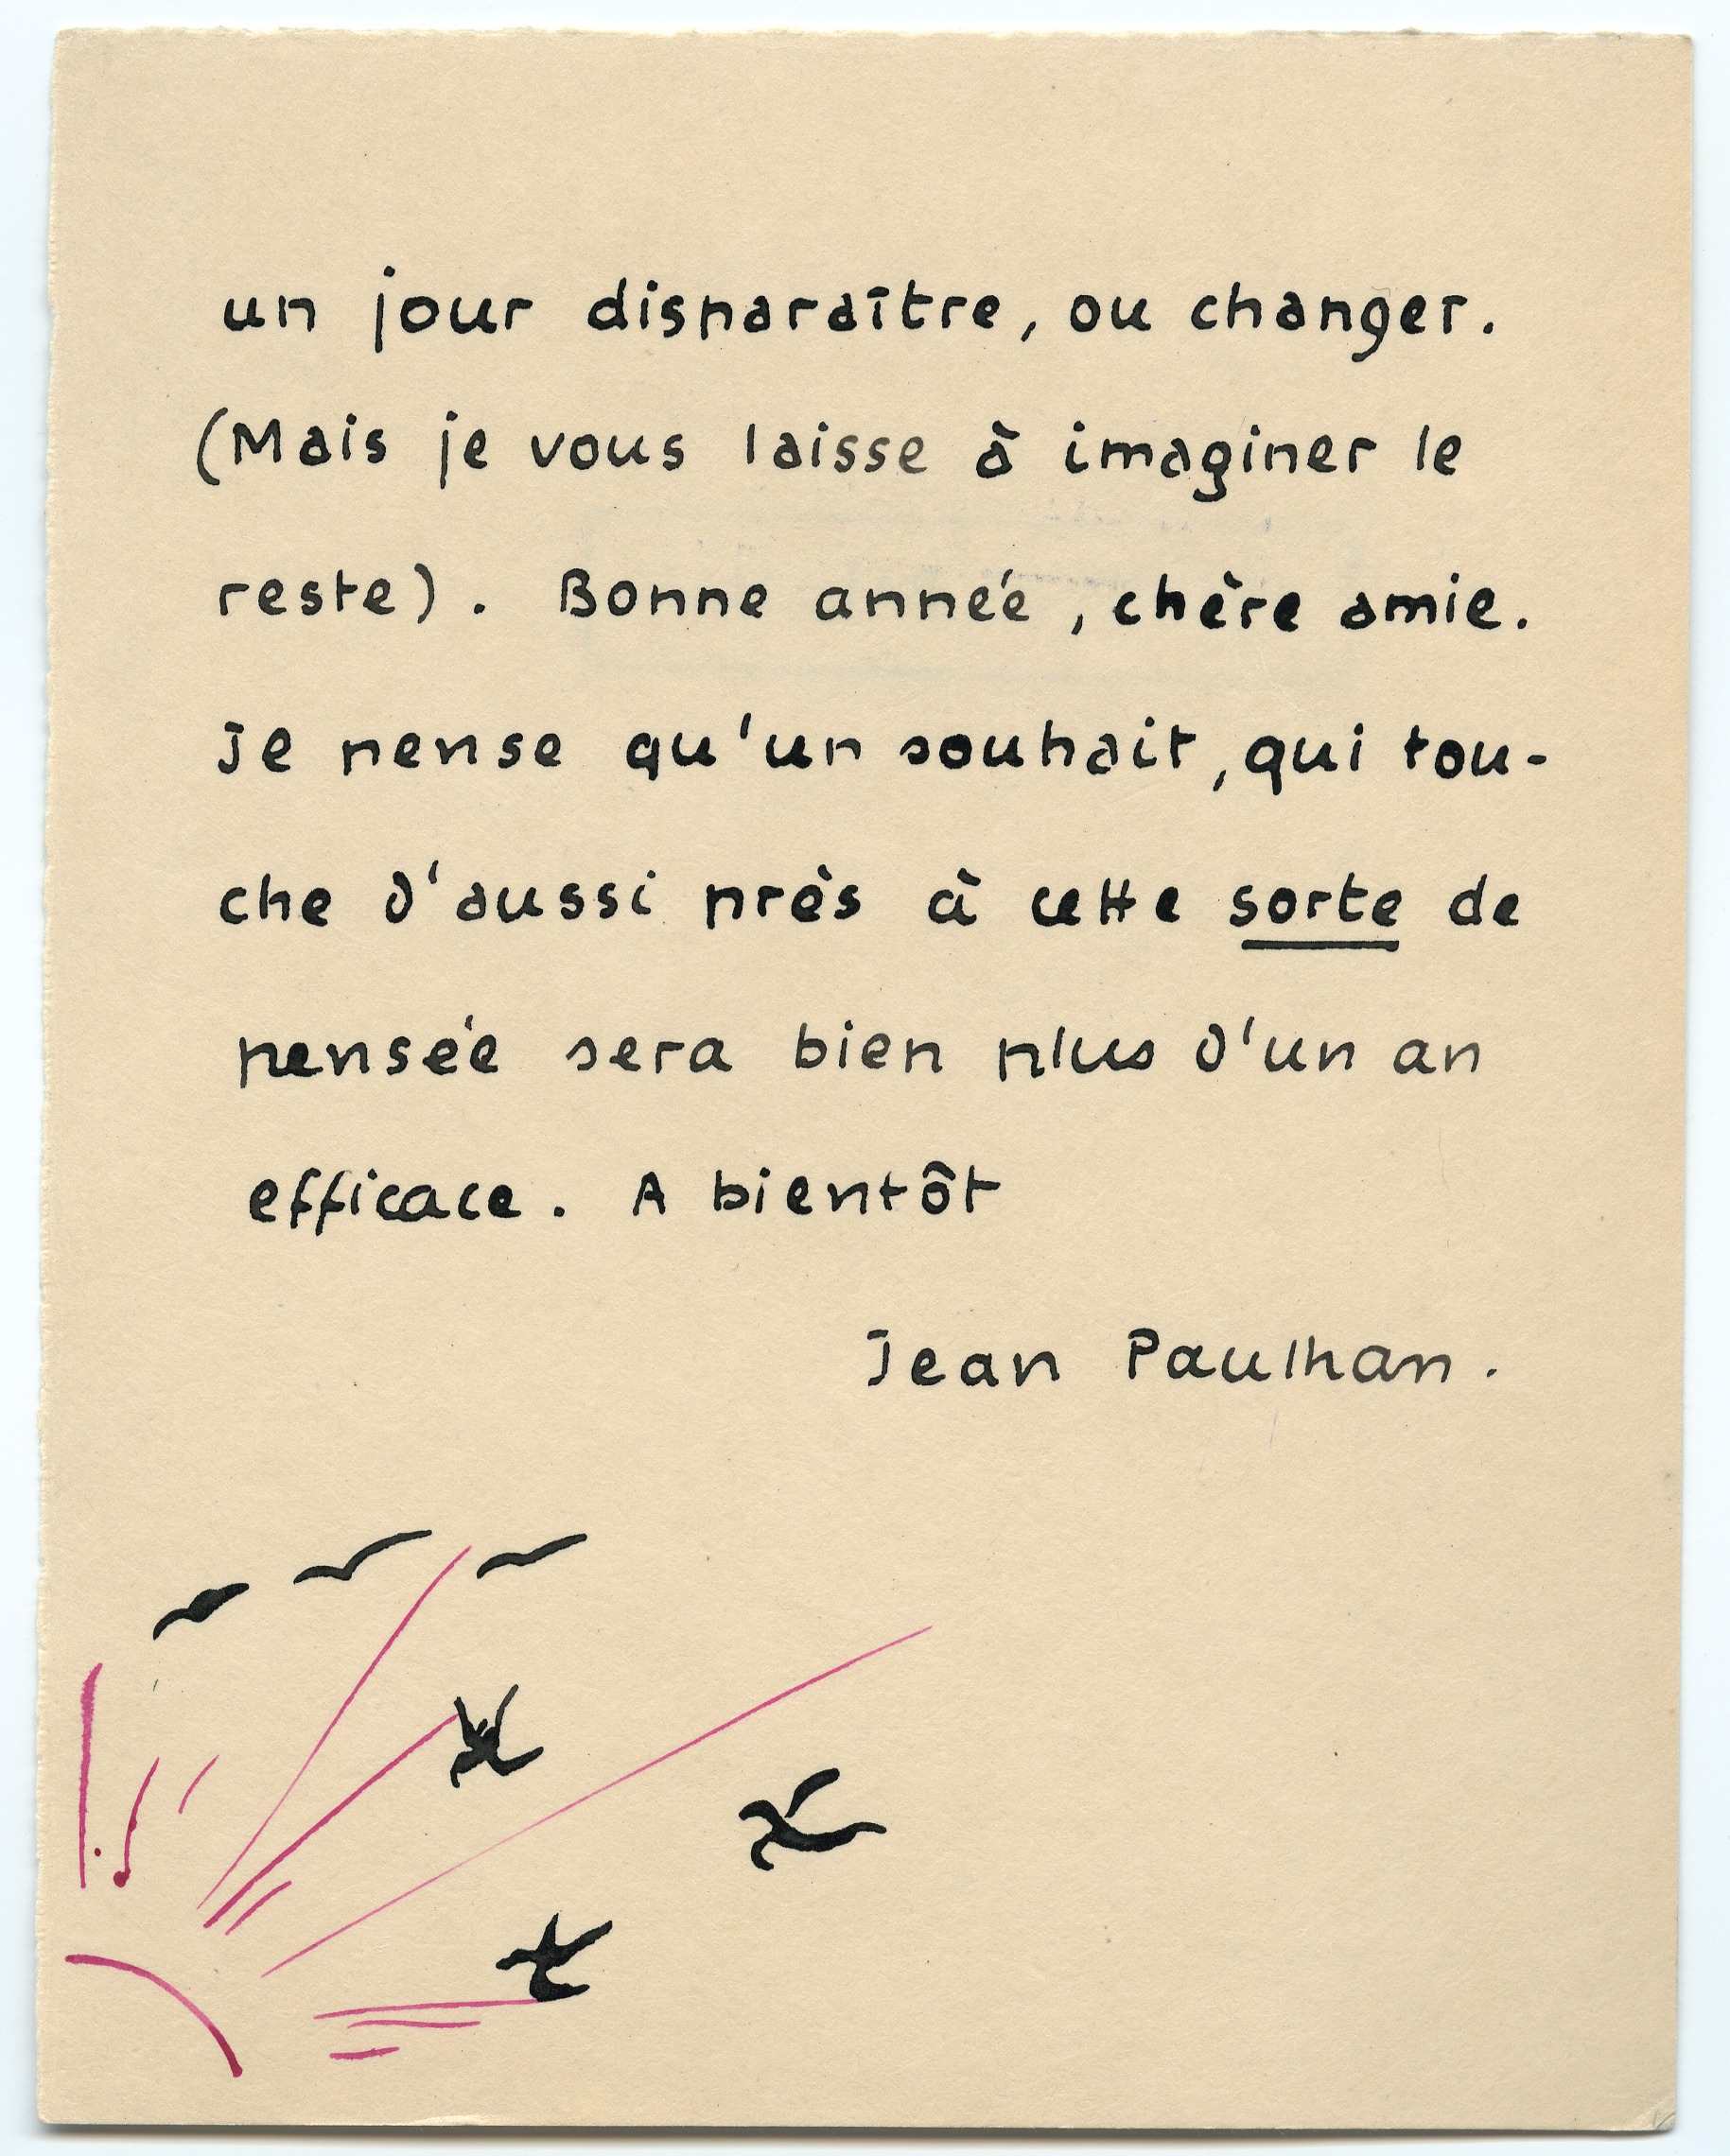 un jour disparaître, ou changer.
(Mais je vous laisse à imaginer le
reste). Bonne année, chère amie.
Je pense qu'un souhait, qui tou-
che d'aussi près à cette sorte de
pensée sera bien plus d'un an
efficace. A bientôt
Jean Paulhan.